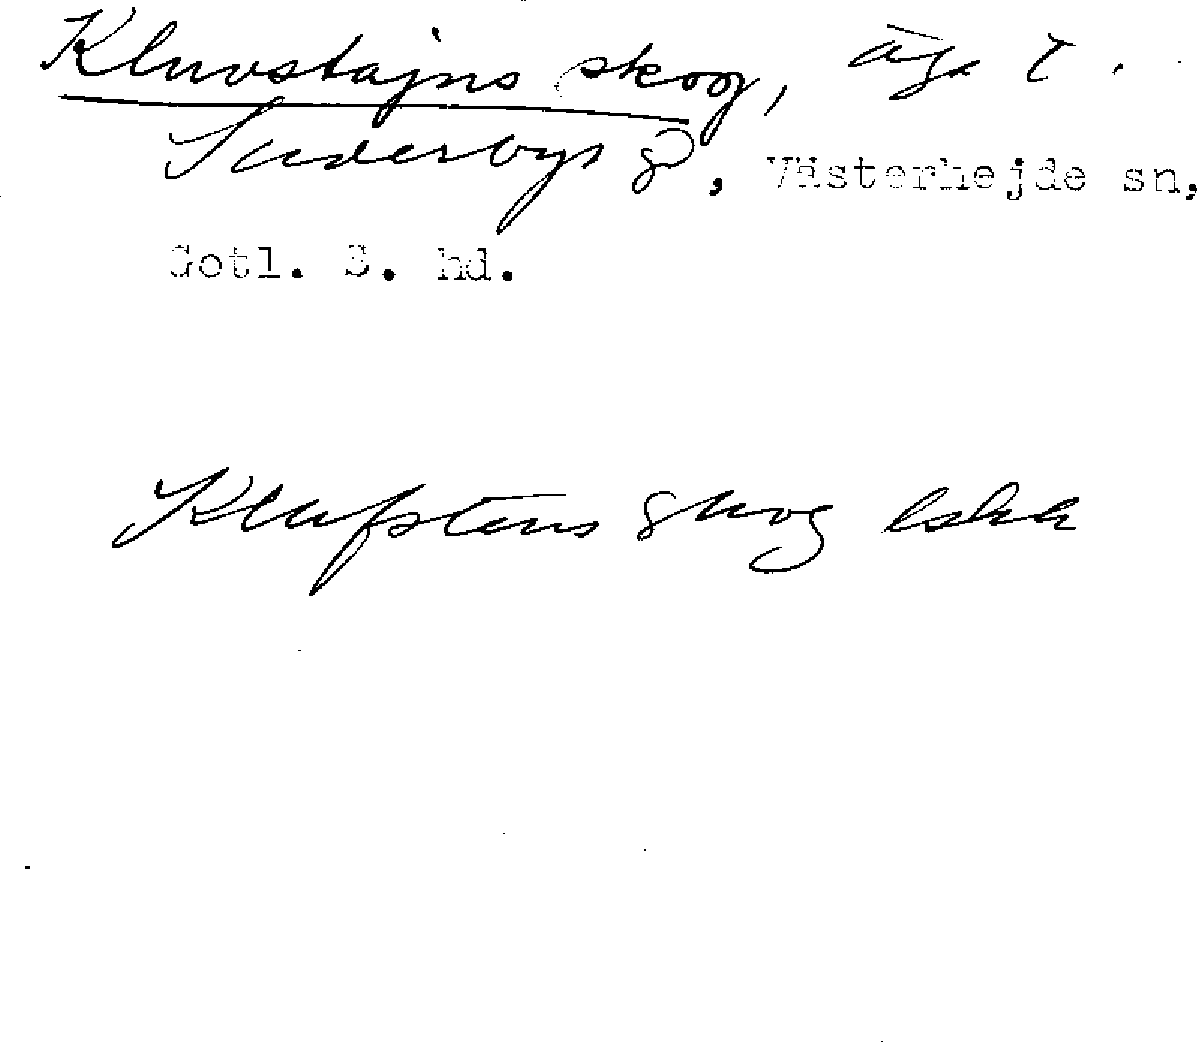 Kluvstajns skog, äga t.
Suderbys gd, Västerhejde sn,
Gotl. S. hd.
Klufstens skog